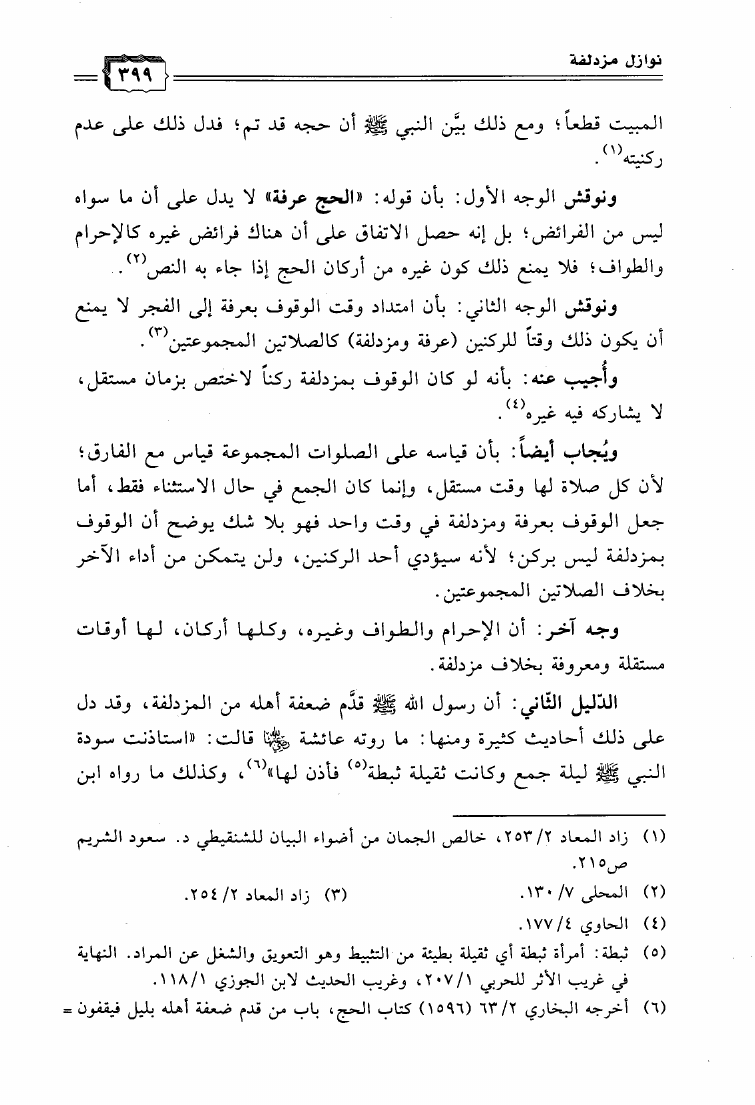 نوازل مزدلفة
٣٩٩
المبيت قطعاً؛ ومع ذلك بيَّن النبي ﷺ أن حجه قد تم؛ فدل ذلك على عدم
ركنيته(١).
ونوقش الوجه الأول: بأن قوله: «الحج عرفة» لا يدل على أن ما سواه
ليس من الفرائض؛ بل إنه حصل الاتفاق على أن هناك فرائض غيره كالإحرام
والطواف؛ فلا يمنع ذلك كون غيره من أركان الحج إذا جاء به النص(٢).
ونوقش الوجه الثاني: بأن امتداد وقت الوقوف بعرفة إلى الفجر لا يمنع
أن يكون ذلك وقتاً للركنين (عرفة ومزدلفة) كالصلاتين المجموعتين(٣).
وأُجيب عنه: بأنه لو كان الوقوف بمزدلفة ركناً لاختص بزمان مستقل،
لا يشاركه فيه غيره(٤).
ويُجاب أيضاً: بأن قياسه على الصلوات المجموعة قياس مع الفارق؛
لأن كل صلاة لها وقت مستقل، وإنما كان الجمع في حال الاستثناء فقط، أما
جعل الوقوف بعرفة ومزدلفة في وقت واحد فهو بلا شك يوضح أن الوقوف
بمزدلفة ليس بركن؛ لأنه سيؤدي أحد الركنين، ولن يتمكن من أداء الآخر
بخلاف الصلاتين المجموعتين.
وجه آخر: أن الإحرام والطواف وغيره، وكلها أركان، لها أوقات
مستقلة ومعروفة بخلاف مزدلفة.
الدّليل الثّاني: أن رسول الله ﷺ قدَّم ضعفة أهله من المزدلفة، وقد دل
على ذلك أحاديث كثيرة ومنها: ما روته عائشة رضي الله عنها قالت: «استاذنت سودة
النبي ﷺ ليلة جمع وكانت ثقيلة ثبطة(٥) فأذن لها»(٦)، وكذلك ما رواه ابن
(١) زاد المعاد ٢/٢٥٣، خالص الجمان من أضواء البيان للشنقيطي د. سعود الشريم
ص٢١٥.
(٢) المحلى ٧/١٣٠. (٣) زاد المعاد ٢/٢٥٤.
(٤) الحاوي ٤/١٧٧.
(٥) ثبطة: أمرأة ثبطة أي ثقيلة بطيئة من التثبيط وهو التعويق والشغل عن المراد. النهاية
في غريب الأثر للحربي ١/٢٠٧، وغريب الحديث لابن الجوزي ١/١١٨.
(٦) أخرجه البخاري ٢/٦٣ (١٥٩٦) كتاب الحج، باب من قدم ضعفة أهله بليل فيقفون =